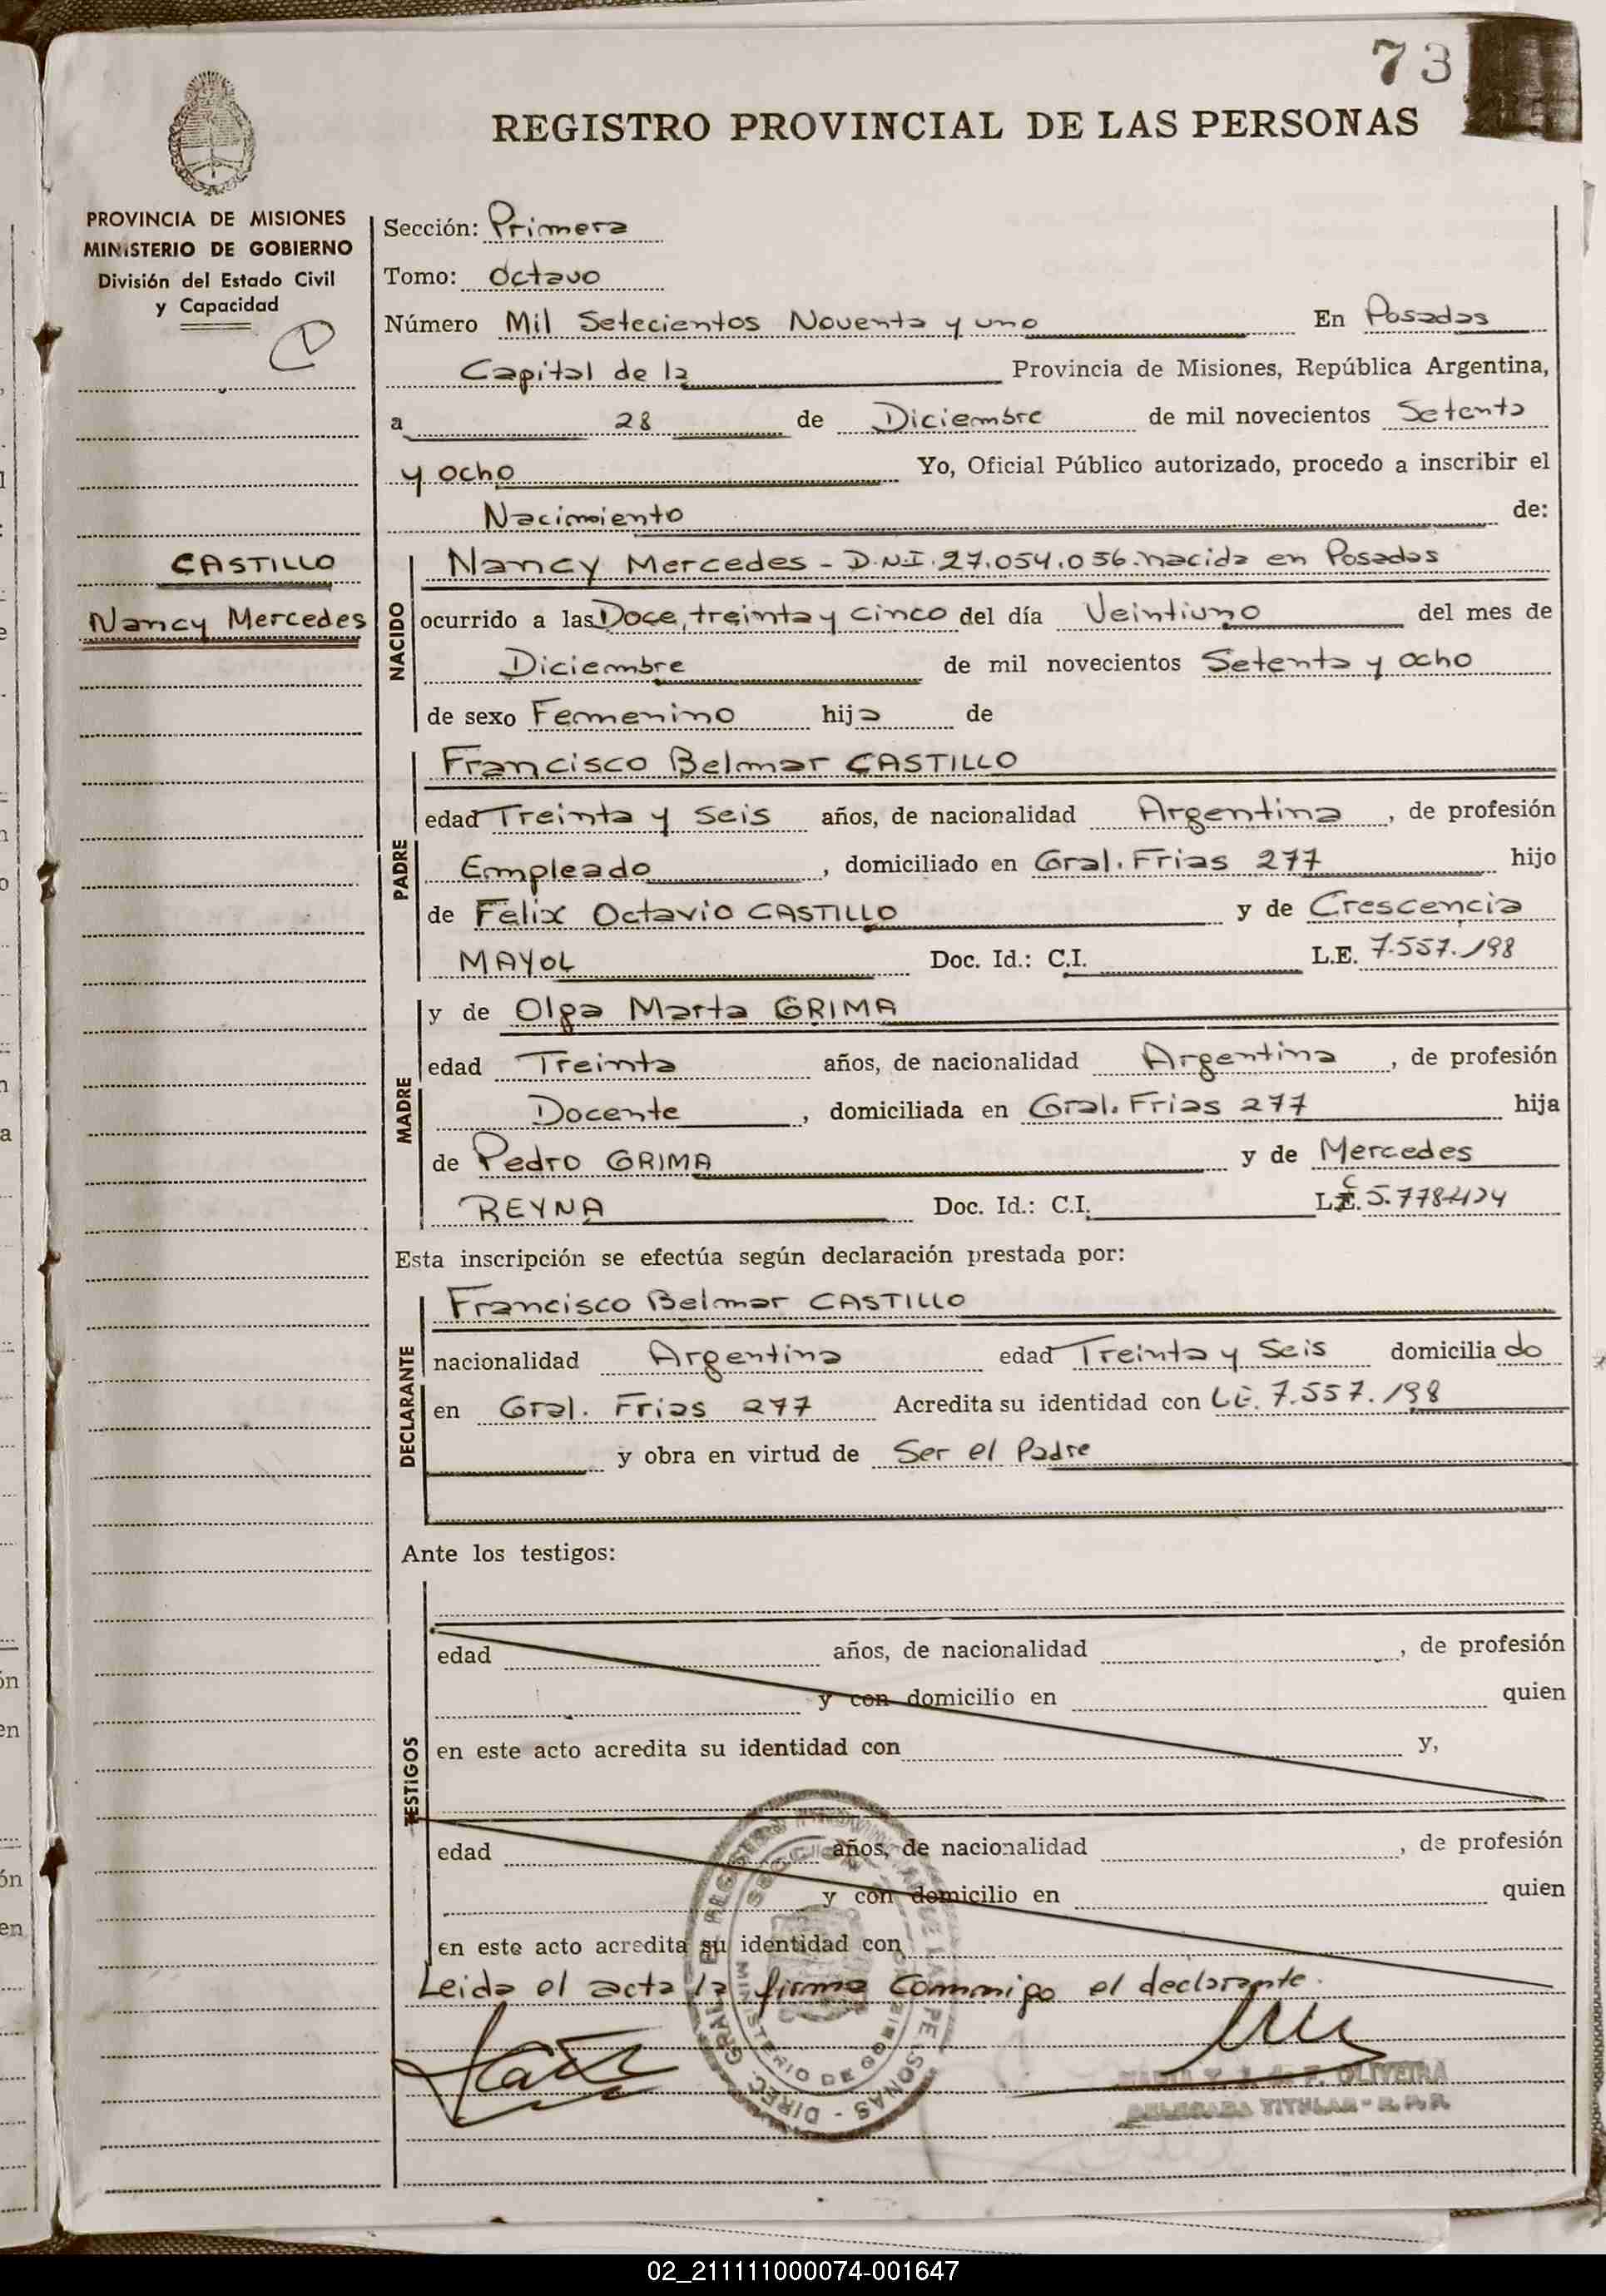 73
REGISTRO PROVINCIAL DE LAS PERSONAS
PROVINCIA DE MISIONES
MINISTERIO DE GOBIERNO
División del Estado Civil
y Capacidad
Sección: Primera
Tomo: Octavo
Número Mil Setecientos Noventa y uno En Posadas
Capital de la Provincia de Misiones, República Argentina,
a 28 de Diciembre de mil novecientos Setenta
y ocho Yo, Oficial Público autorizado, procedo a inscribir el
Nacimiento de:
CASTILLO
Nancy Mercedes
NACIDO
Nancy Mercedes - D.N.I. 27.054.056. nacida en Posadas
ocurrido a las Doce, treinta y cinco del día Veintiuno del mes de
Diciembre de mil novecientos Setenta y ocho
de sexo Femenino hija de
PADRE
Francisco Belmar CASTILLO
edad Treinta y Seis años, de nacionalidad Argentina, de profesión
Empleado, domiciliado en Gral. Frias 277 hijo
de Felix Octavio CASTILLO y de Crescencia
MAYOL Doc. Id.: C.I. L.E. 7.557.198
MADRE
y de Olga Marta GRIMA
edad Treinta años, de nacionalidad Argentina, de profesión
Docente, domiciliada en Gral. Frias 277 hija
de Pedro GRIMA y de Mercedes
REYNA Doc. Id.: C.I. L.C.
Esta inscripción se efectúa según declaración prestada por:
DECLARANTE
Francisco Belmar CASTILLO
nacionalidad Argentina edad Treinta y Seis domiciliado
en Gral. Frias 277 Acredita su identidad con L.E. 7.557.198
y obra en virtud de Ser el Padre
Ante los testigos:
TESTIGOS
edad años, de nacionalidad , de profesión
y con domicilio en quien
en este acto acredita su identidad con y,
edad años, de nacionalidad , de profesión
y con domicilio en quien
en este acto acredita su identidad con
Leida el acta la firma Conmigo el declarante.
OLIVEIRA
DELEGADA TITULAR - R. P. P.
02_211111000074-001647